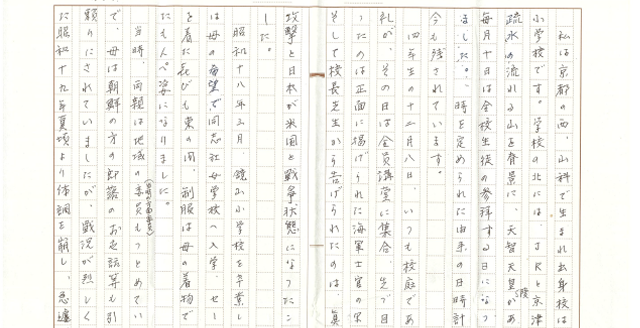 私は京都の西、山科で生まれ出身校は
小学校です。学校の北には、JRと京津
疏水の流れる山を背景に、天智天皇陵があ
毎月十日は全校生徒の参拝する日になっ
ました。時を定められた由来の日時計
今も残されています。
四年生の十二月八日、いつも校庭であ
礼が、その日は全員講堂に集合、先づ目
ったのは正面に掲げられた海軍士官の写
そして校長先生から告げられたのは、真
攻撃と日本が米国と戦争状態になったこ
した。
昭和十八年三月、鏡山小学校を卒業し
は母の希望で同志社女学校へ入学、セー
を着た喜びも束の間、制服は母の着物で
たもんぺ姿になりました。
当時、両親は地域の委員もつとめてい
で、母は朝鮮の方の部落のお世話等も引
頼りにされていましたが、戦況が烈しく
た昭和十九年夏頃より体調を崩し、急遽